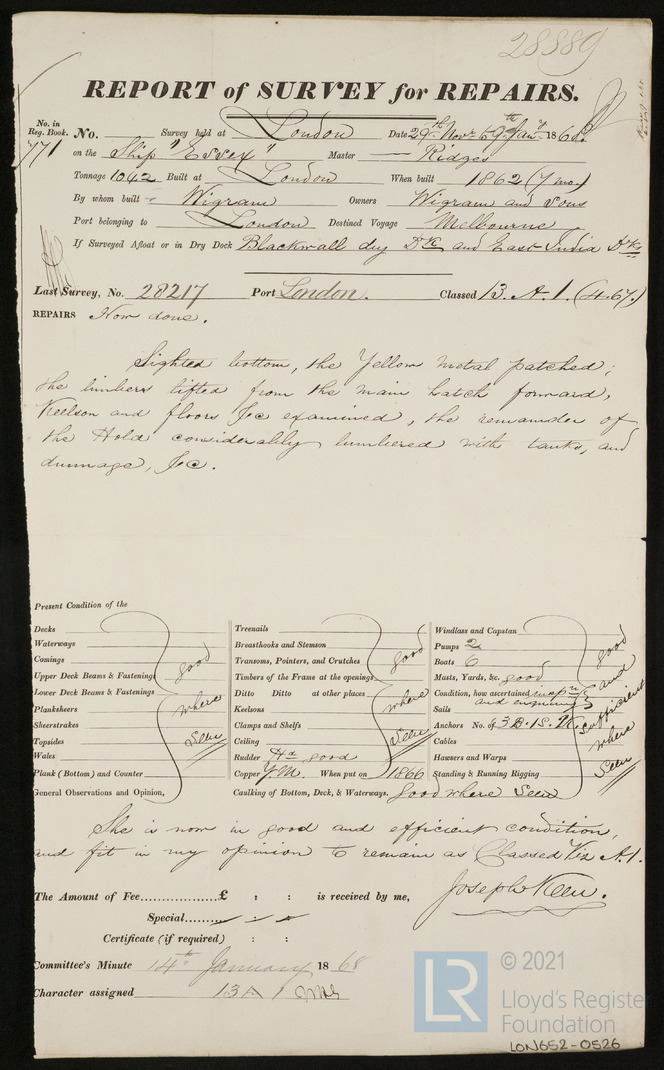 28889
REPORT of SURVEY for REPAIRS.
No. in Reg. Book.
771
No. Survey held at London Date 29th Novr to 9th Jany 1868
on the Ship "Essex" Master Ridges
Tonnage 1042 Built at London When built 1862 (7 mo.)
By whom built Wigram Owners Wigram and Sons
Port belonging to London Destined Voyage Melbourne
If Surveyed Afloat or in Dry Dock Blackwall dry Dk and East India Dks
Last Survey, No. 28217 Port London. Classed 13. A. 1. (4.67.)
REPAIRS Now done.
Sighted bottom, the Yellow metal patched;
the limbers lifted from the main hatch forward,
Keelson and floors &c examined, the remainder of
the Hold considerably lumbered with tanks, and
dunnage, &c.
Present Condition of the
Decks
Waterways
Comings
Upper Deck Beams & Fastenings
Lower Deck Beams & Fastenings
Planksheers
Sheerstrakes
Topsides
Wales
Plank (Bottom) and Counter
good
where
Seen
Treenails
Breasthooks and Stemson
Transoms, Pointers, and Crutches
Timbers of the Frame at the openings
Ditto Ditto at other places
Keelsons
Clamps and Shelfs
Ceiling
Rudder Hd good
Copper Y.M. When put on 1866
good
where
Seen
Windlass and Capstan
Pumps 2
Boats 6
Masts, Yards, &c. good
Condition, how ascertained
Sails
Anchors No. of 3 B. 1 S. 2 K.
Cables
Hawsers and Warps
Standing & Running Rigging
good
and
sufficient
where
Seen
General Observations and Opinion,
Caulking of Bottom, Deck, & Waterways. Good where Seen
She is now in good and efficient condition,
and fit in my opinion to remain as Classed Viz A.1.
The Amount of Fee £ : : is received by me,
Joseph Keen.
Special
Certificate (if required) : :
Committee's Minute 14th January 1868
Character assigned 13 A 1
LR
© 2021
Lloyd's Register
Foundation
LON652-0526